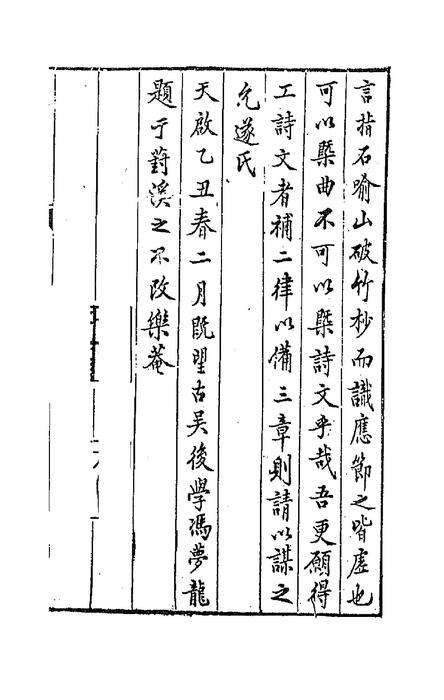 言指石喻山破竹杪而識應節之皆虛也
可以槩曲不可以槩詩文乎哉吾更願得
工詩文者補二律以備三章則請以謀之
允遂氏
天啟乙丑春二月既望古吳後學馮夢龍
題于葑溪之不改樂菴